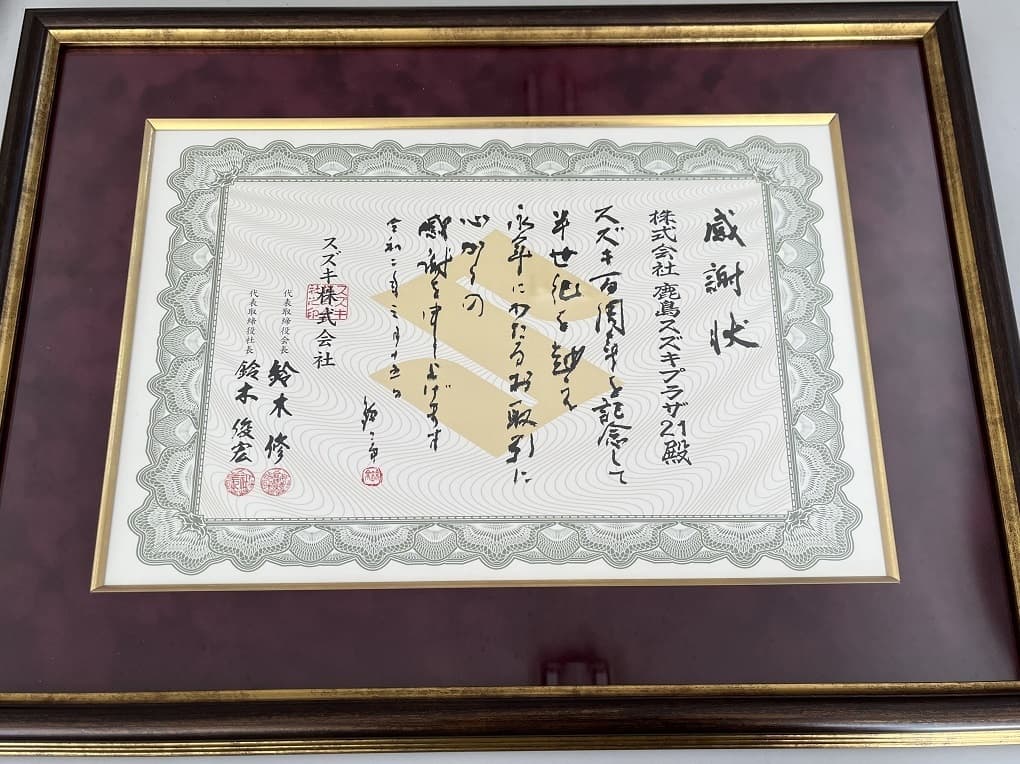 感謝状
株式会社 鹿島スズキプラザ21殿
スズキ百周年を記念して
半世紀を越え
永年にわたるお取引に
心からの
感謝を申し上げます
令和二年三月十五日
スズキ株式会社
代表取締役会長 鈴木 修
代表取締役社長 鈴木 俊宏